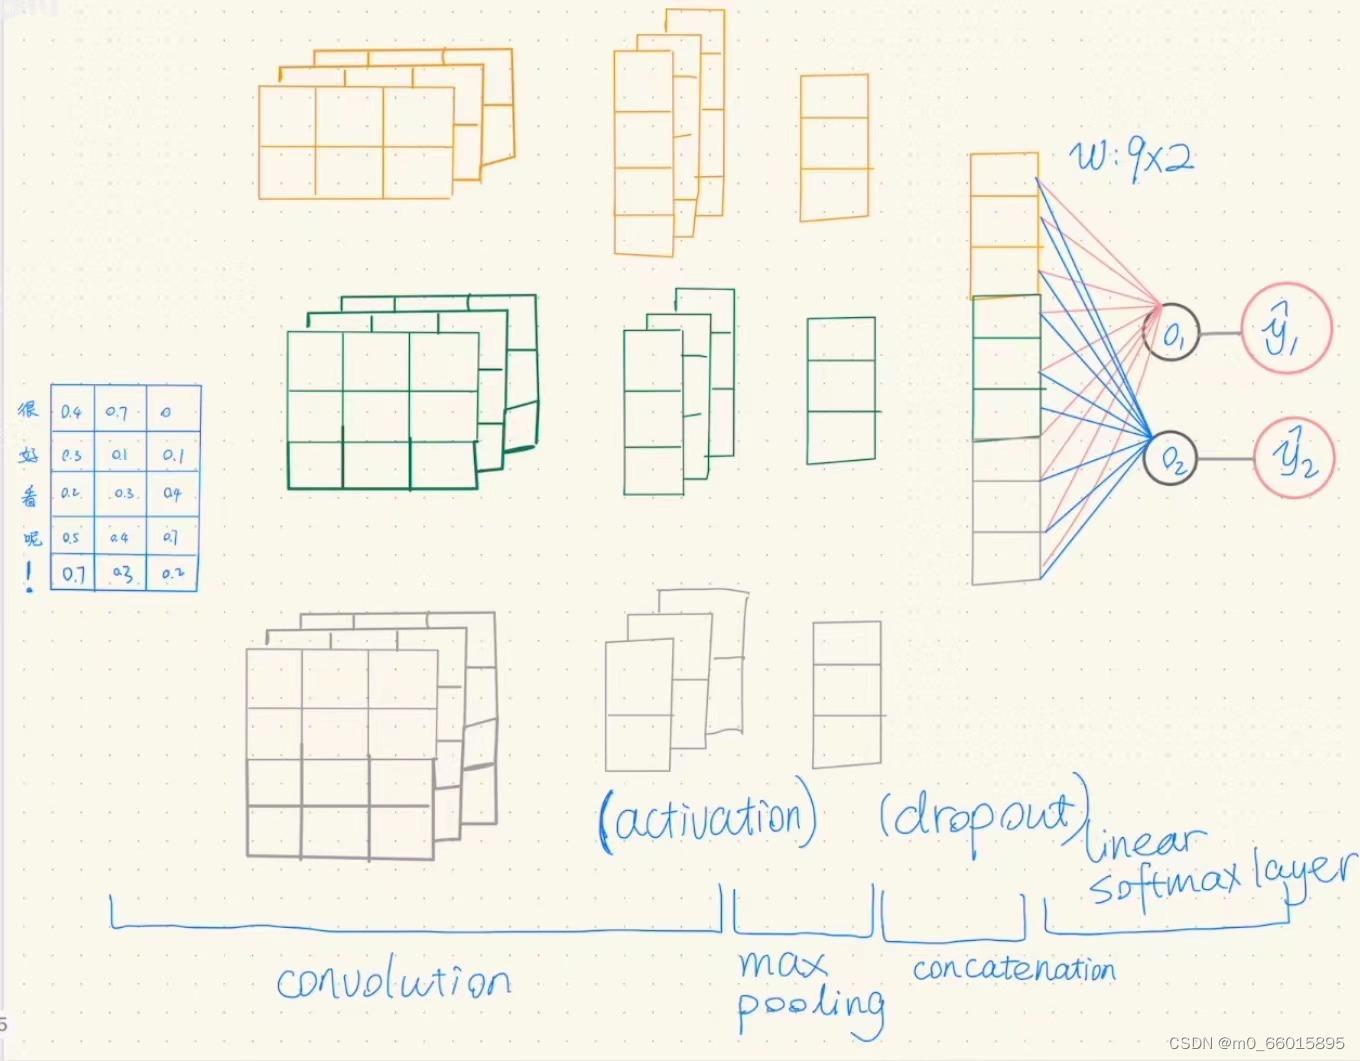 w:9x2
很 0.4 0.7 0
好 0.3 0.1 0.1
看 0.2 0.3 0.4
呢 0.5 0.4 0.7
! 0.7 0.3 0.2
O₁ ŷ₁
O₂ ŷ₂
(activation) (dropout)
linear
softmax layer
convolution
max
pooling
concatenation
5
CSDN @m0_66015895